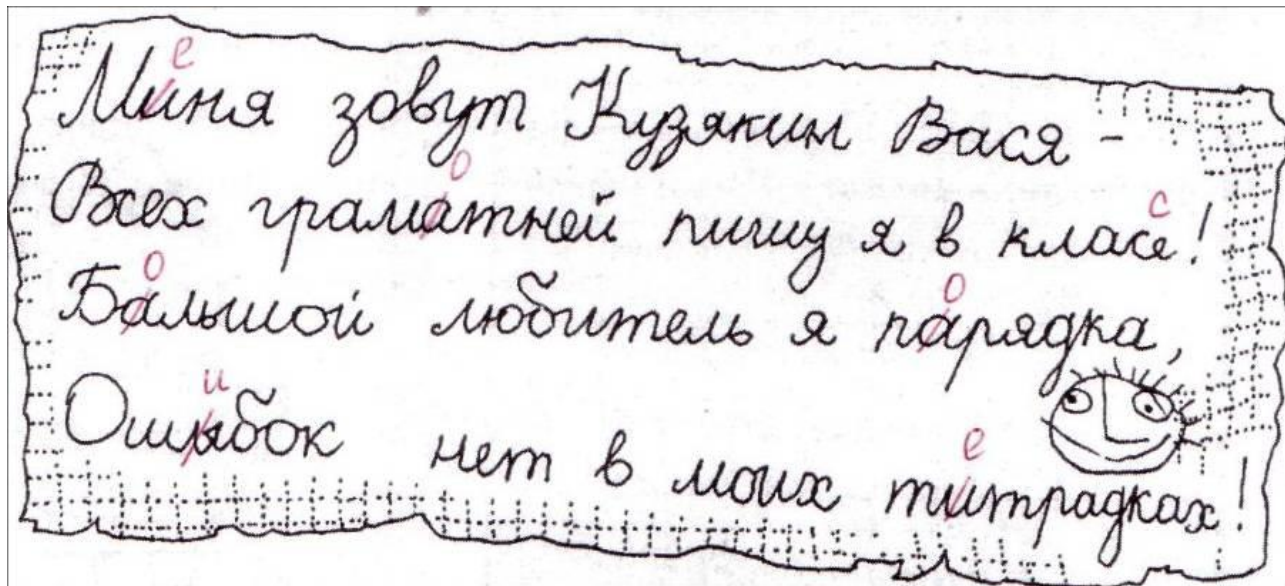 Миня зовут Кузякин Вася -
Всех граматней пишу я в класе!
Балышой любитель я парядка,
Ошыбок нет в моих титрадках!